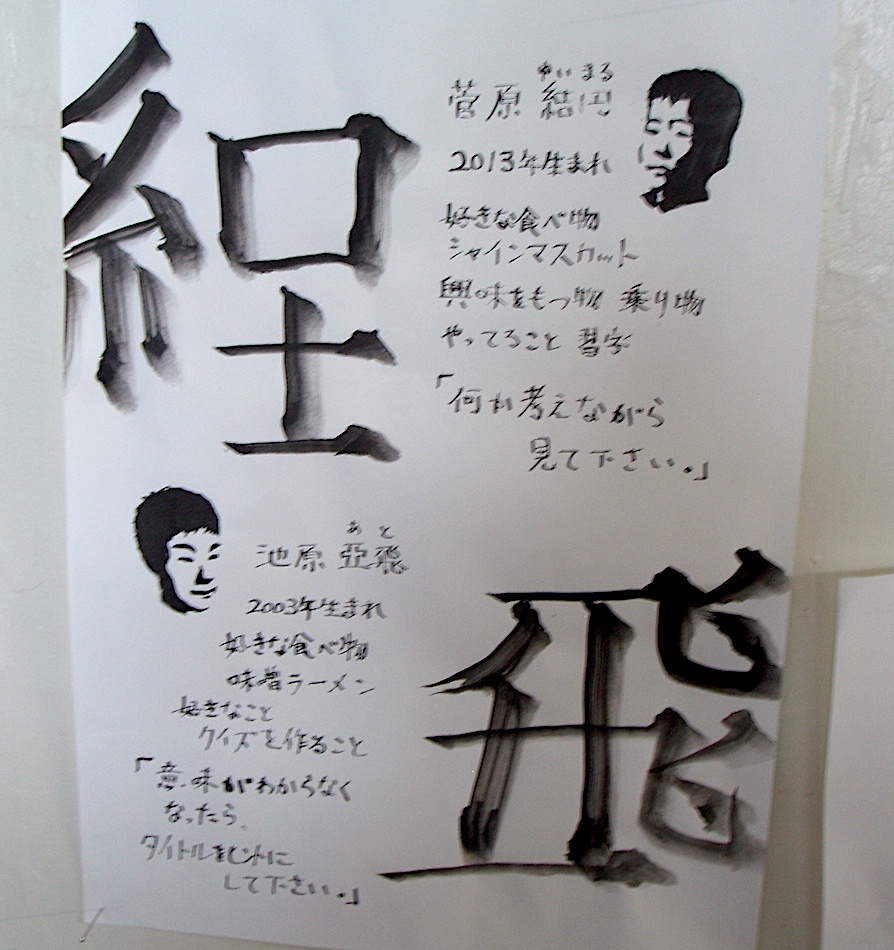 結
ゆいまる
菅原 結円
2013年生まれ
好きな食べ物
シャインマスカット
興味をもつ物 乗り物
やってること 習字
「何か考えながら
見て下さい。」
あと
池原 亞飛
2003年生まれ
好きな食べ物
味噌ラーメン
好きなこと
クイズを作ること
「意味がわからなく
なったら、
タイトルをヒントに
して下さい。」
飛